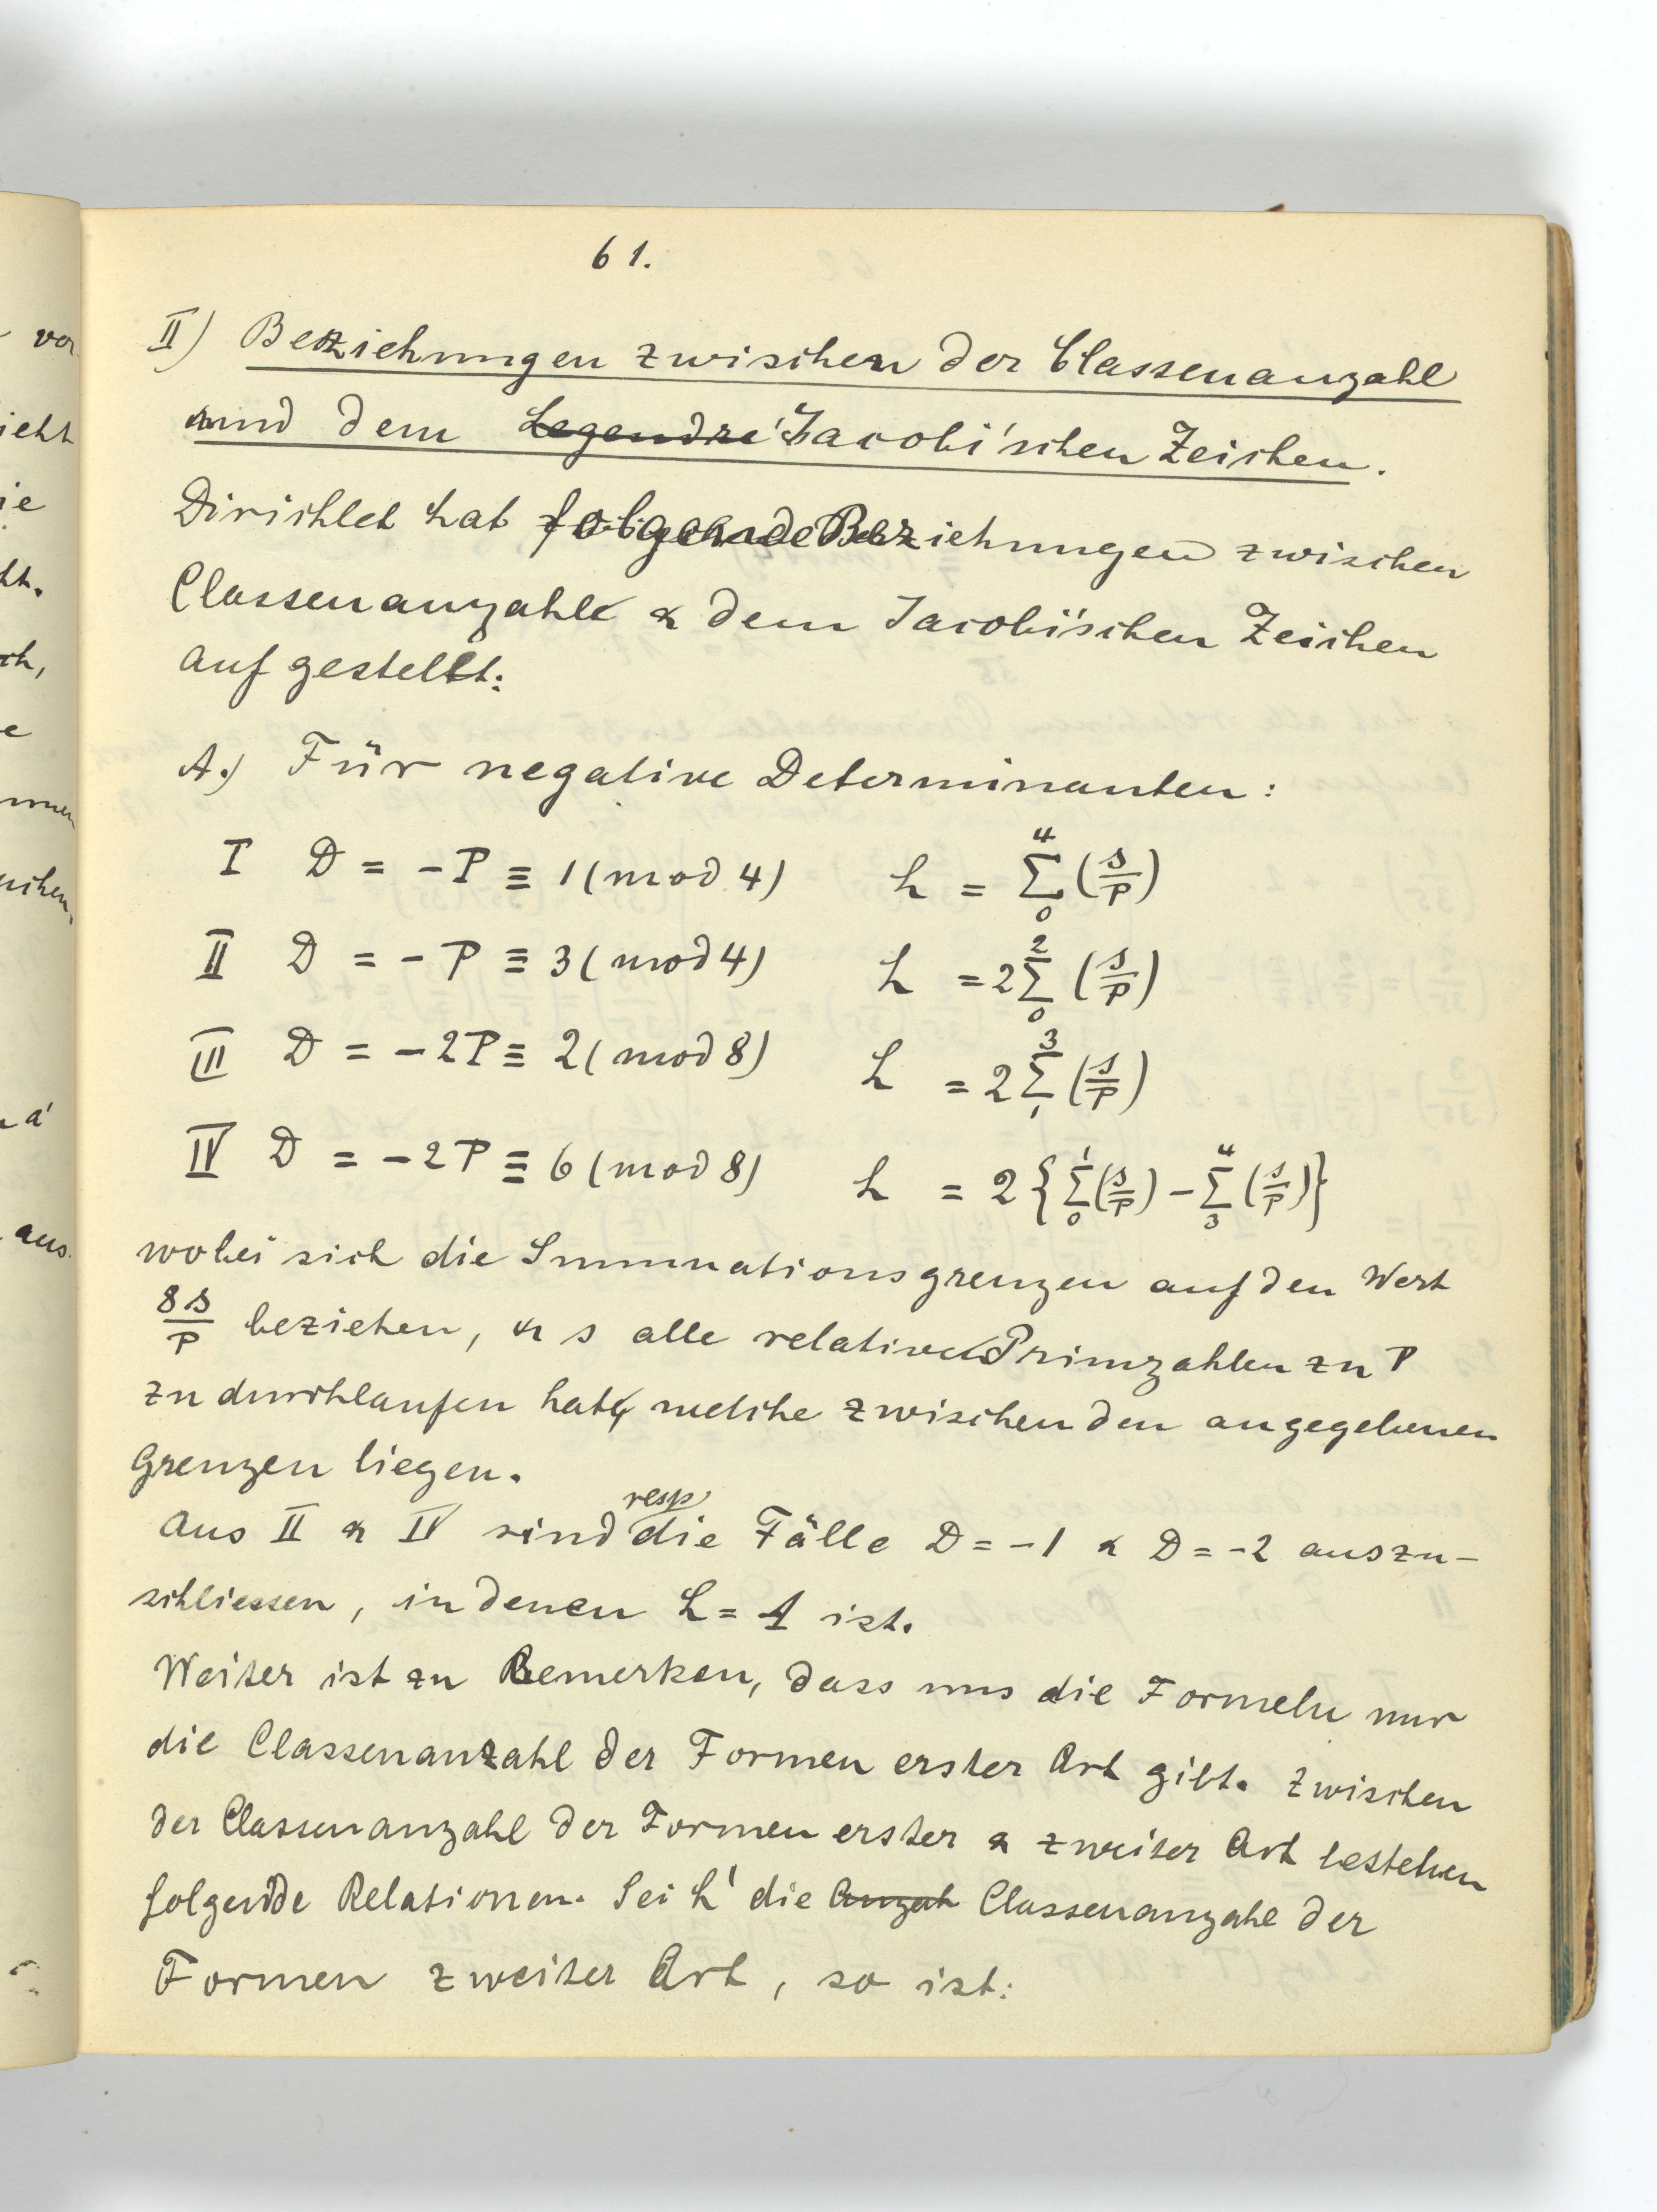 61.
II) Beziehungen zwischen der Classenanzahl
und dem Legendre' Jacobi'schen Zeichen.
Dirichlet hat folgende Beziehungen zwischen
Classenanzahl & dem Jacobi'schen Zeichen
aufgestellt:
A.) Für negative Determinanten:
I D = -P ≡ 1 (mod 4) h = Σ₀⁴ (s/P)
II D = -P ≡ 3 (mod 4) h = 2 Σ₀² (s/P)
III D = -2P ≡ 2 (mod 8) h = 2 Σ₁³ (s/P)
IV D = -2P ≡ 6 (mod 8) h = 2 {Σ₀¹ (s/P) - Σ₃⁴ (s/P)}
wobei sich die Summationsgrenzen auf den Wert
8s/P beziehen, & s alle relative Primzahlen zu P
zu durchlaufen hat, welche zwischen den angegebenen
Grenzen liegen.
Aus II & IV sind resp die Fälle D = -1 & D = -2 auszu-
schliessen, in denen h = 1 ist.
Weiter ist zu Bemerken, dass uns die Formeln nur
die Classenanzahl der Formen erster Art gibt. Zwischen
der Classenanzahl der Formen erster & zweiter Art bestehen
folgende Relationen. Sei h' die Anzah Classenanzahl der
Formen zweiter Art, so ist:
vor
ieht
ie
ht.
ch,
e
aus.